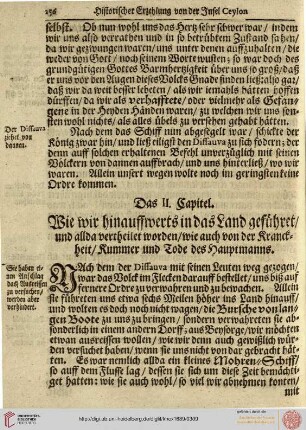 256 Historischer Erzehlung von der Insel Ceylon
selbst. Ob nun wohl uns das Hertz sehr schwer war / indem
wir uns also verrathen und in so betrübten Zustand sahen /
da wir gezwungen waren / uns unter denen auffzuhalten / die
weder von Gott / noch seinem Worte wusten; so war doch des
grundgütigen Gottes Barmhertzigkeit über uns so groß / daß
er uns vor den Augen dieses Volcks Gnade finden ließ / also gar /
daß wir da weit besser lebten / als wir iemals hätten hoffen
dürffen / da wir als verhafftete / oder vielmehr als Gefan-
gene in der Heyden Händen waren / zu welchen wir uns son-
sten wohl nichts / als alles übels zu versehen gehabt hätten.
Nach dem das Schiff nun abgesegelt war / schickte der
König zwar hin / und ließ eiligst den Dissauva zu sich fodern; der
denn auff solchen erhaltenen Befehl unverzüglich mit seinen
Völckern von dannen auffbrach / und uns hinterließ / wo wir
waren. Allein unsert wegen wolte noch im geringsten keine
Ordre kommen.
Der Dissauva
ziehet von
dannen.
Das II. Capitel.
Wie wir hinauffwerts in das Land geführet /
und allda vertheilet worden / wie auch von der Kranck-
heit / Kummer und Tode des Hauptmanns.
Sie haben ei-
nen Anschlag
das Ausreissen
zu versuchen /
werden aber
verhindert.
NAch dem der Dissauva mit seinen Leuten weg gezogen /
war das Volck im Flecken darauf bestellet / uns biß auf
fernere Ordre zu verwahren und zubewachen. Allein
sie führeten uns etwa sechs Meilen höher ins Land hinauf /
und wolten es doch noch nicht wagen / die Bursche von lan-
gen Boote zu uns zu bringen / sondern verwahreten sie ab-
sonderlich in einem andern Dorff / aus Beysorge / wir möchten
etwan ausreissen wollen / wie wir denn auch gewißlich wür-
den versuchet haben / wenn sie uns nicht von dar gebracht hät-
ten. Es war nemlich allda ein kleines Mohren-Schiff /
so auff dem Flusse lag / dessen sie sich um diese Zeit bemächti-
get hatten: wie sie auch wohl / so viel wir abnehmen konten /
mit
http://digi.ub.uni-heidelberg.de/diglit/knox1689/0309